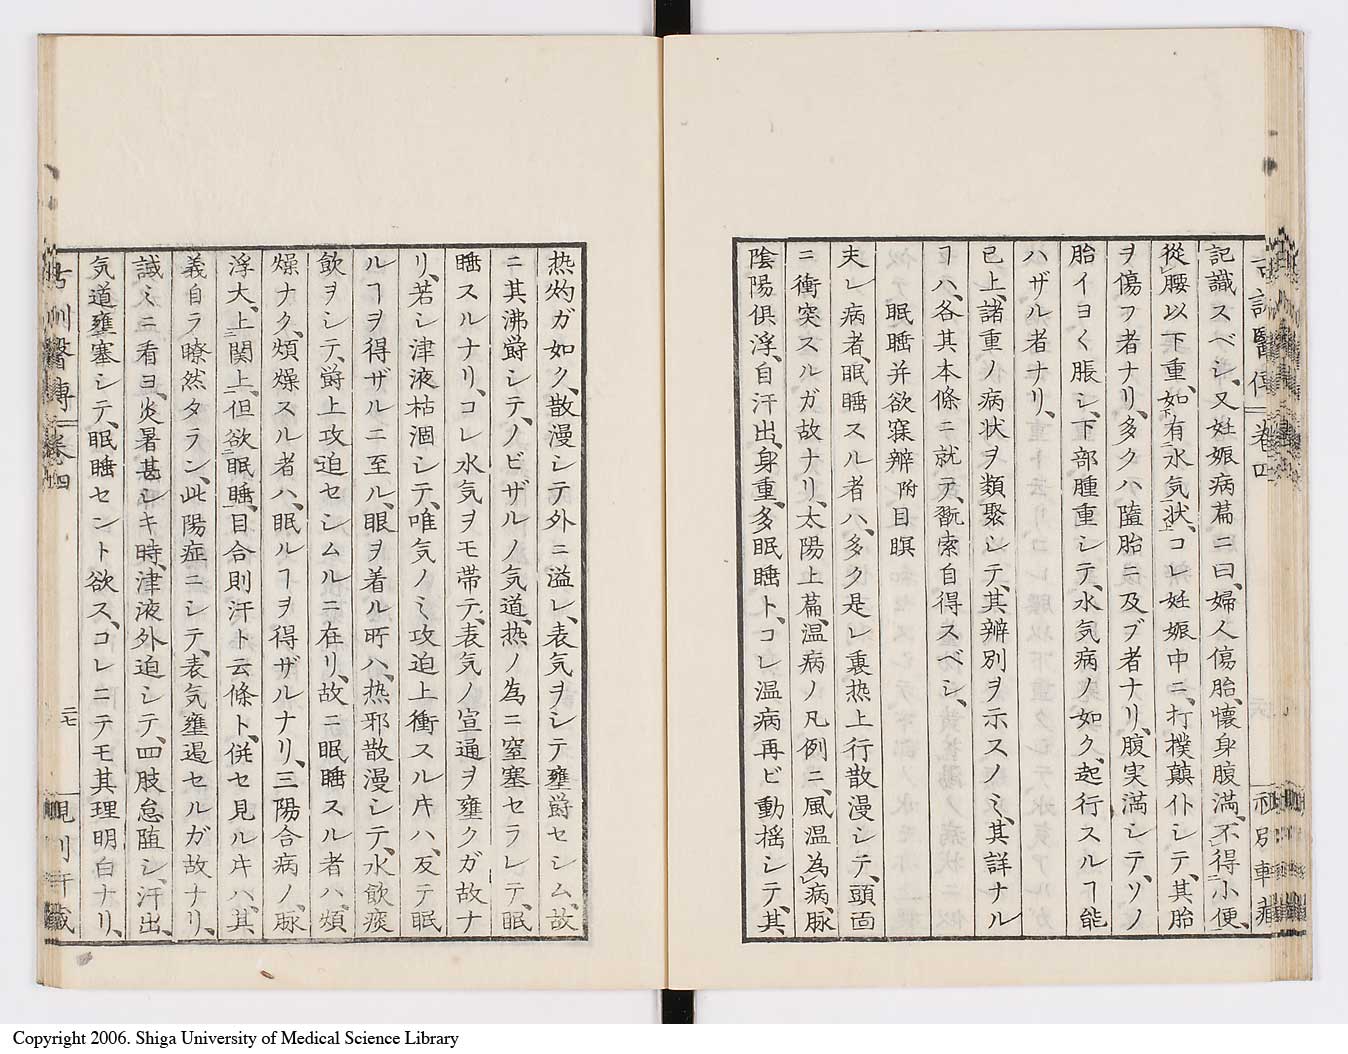 古訓醫傳 卷四
記識スベシ、又妊娠病篇ニ曰、婦人傷胎、懐身腹満、不得小便、
從腰以下重、如有水気状、コレ妊娠中ニ、打撲顛仆シテ、其胎
ヲ傷フ者ナリ、多クハ墮胎ニ及ブ者ナリ、腹実満シテ、ソノ
胎イヨく脹シ、下部腫重シテ、水気病ノ如ク、起行スルヿ能
ハザル者ナリ、
已上、諸重ノ病状ヲ類聚シテ、其辨別ヲ示スノミ、其詳ナル
ヿハ、各其本條ニ就テ、翫索自得スベシ、
眠睡并欲寐辨 附目瞑
夫レ病者、眠睡スル者ハ、多ク是レ裏热上行散漫シテ、頭面
ニ衝突スルガ故ナリ、太陽上篇、温病ノ凡例ニ、風温為病、脉
陰陽俱浮、自汗出、身重、多眠睡ト、コレ温病再ビ動揺シテ、其
热灼ガ如ク、散漫シテ外ニ溢レ、表気ヲシテ壅欝セシム、故
ニ其沸欝シテ、ノビザルノ気道、热ノ為ニ窒塞セラレテ、眠
睡スルナリ、コレ水気ヲモ帯テ、表気ノ宣通ヲ壅クガ故ナ
リ、若シ津液枯涸シテ、唯気ノミ攻迫上衝スル片ハ、反テ眠
ルヿヲ得ザルニ至ル、眼ヲ着ル所ハ、热邪散漫シテ、水飲痰
飲ヲシテ、欝上攻迫セシムルニ在リ、故ニ眠睡スル者ハ、煩
燥ナク、煩燥スル者ハ、眠ルヿヲ得ザルナリ、三陽合病ノ、脉
浮大、上関上、但欲眠睡、目合則汗ト云條ト、併セ見ル片ハ、其
義自ラ瞭然タラン、此陽症ニシテ、表気壅遏セルガ故ナリ、
誠ミニ看ヨ、炎暑甚シキ時、津液外迫シテ、四肢怠堕シ、汗出、
気道壅塞シテ、眠睡セント欲ス、コレニテモ其理明白ナリ、
古訓醫傳 卷四
二七
Copyright 2006. Shiga University of Medical Science Library